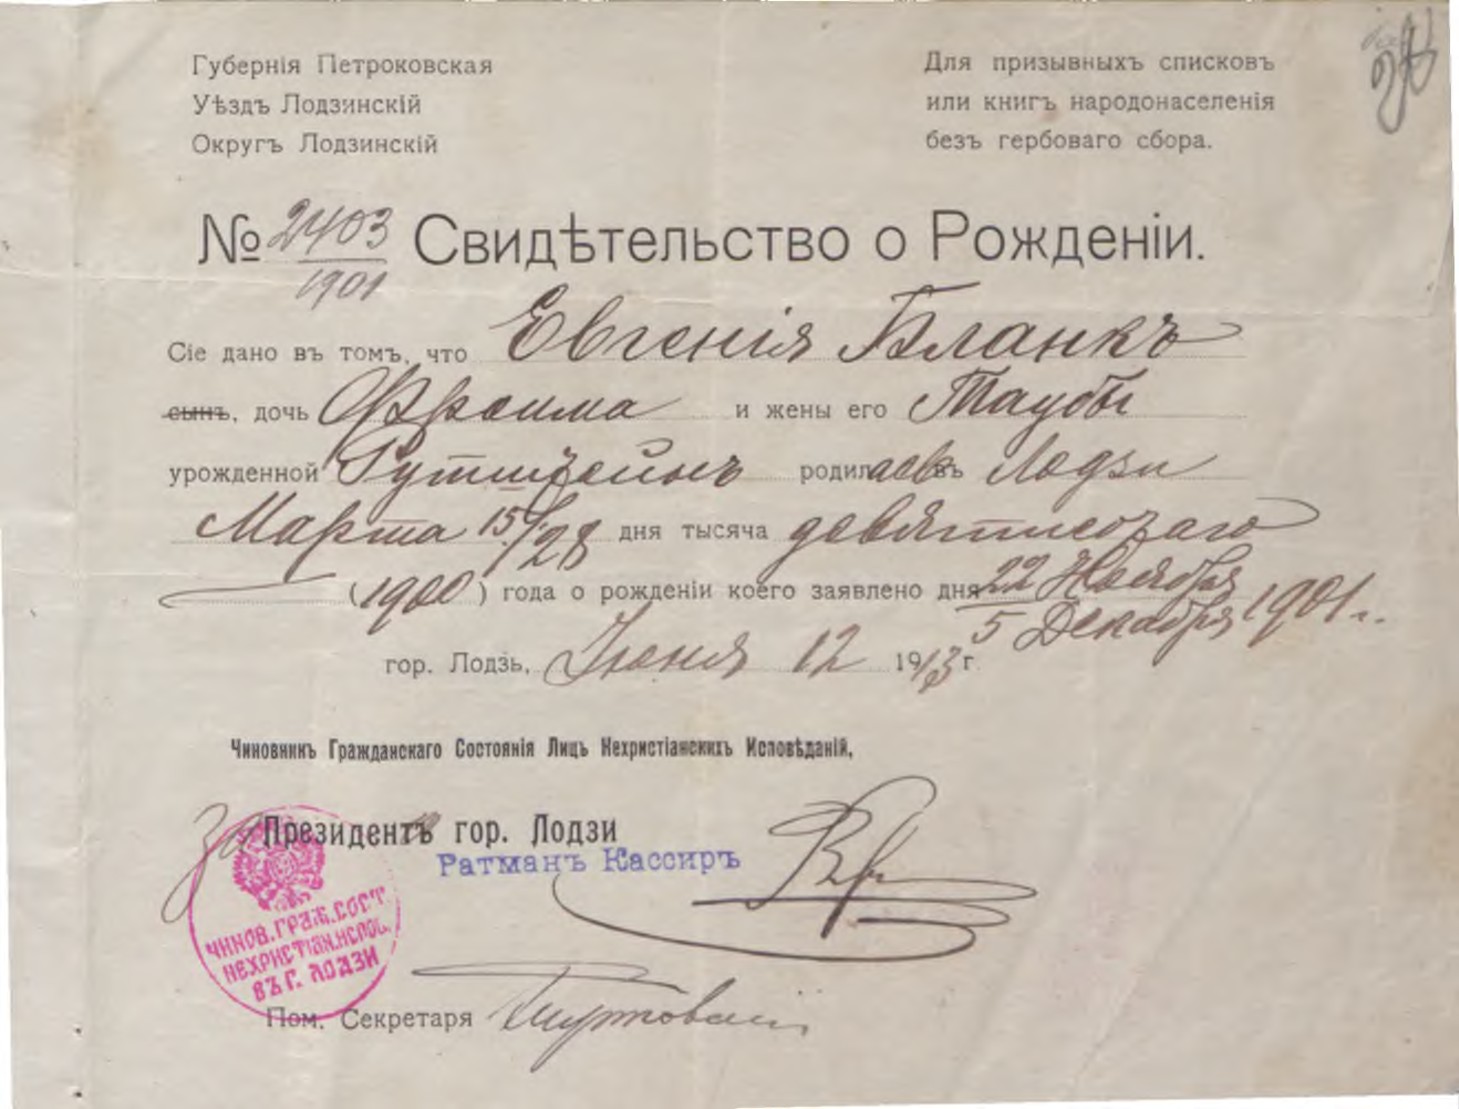 Губернія Петроковская
Уѣздъ Лодзинскій
Округъ Лодзинскій
Для призывныхъ списковъ
или книгъ народонаселенія
безъ гербоваго сбора.
№ 2403/1901 Свидѣтельство о Рожденіи.
Сіе дано въ томъ, что Евгенія Бланкъ
сынъ, дочь Фроима и жены его Таубы
урожденной родилась въ Лодзи
Марта 15/28 дня тысяча девятисотаго
(1900) года о рожденіи коего заявлено дня 22 Ноября
5 Декабря 1901 г.
гор. Лодзь, Іюня 12 1913 г.
Чиновникъ Гражданскаго Состоянія Лицъ Нехристіанскихъ Исповѣданій,
За Президентъ гор. Лодзи
Ратманъ Кассиръ
ЧИНОВ. ГРАЖ. СОСТ.
НЕХРИСТІАН. ИСПОВ.
ВЪ Г. ЛОДЗИ
Пом. Секретаря